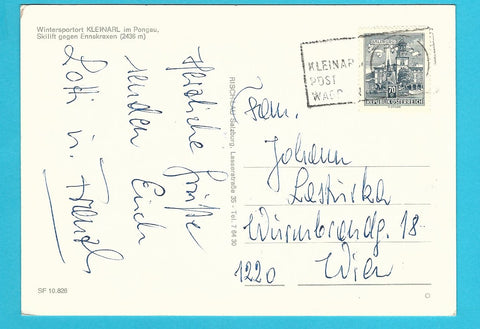 Wintersportort KLEINARL im Pongau,
Skilift gegen Ennskraxen (2436 m)
Herzliche Grüße
senden Euch
Lotti u. Franzl
RISCHEAU Salzburg, Lasserstraße 35 - Tel. 7 64 30
KLEINARL
POST
WAGR
70
REPUBLIK ÖSTERREICH
Fam.
Johann
Wurmbrandg. 18-
1220 Wien
SF 10.826